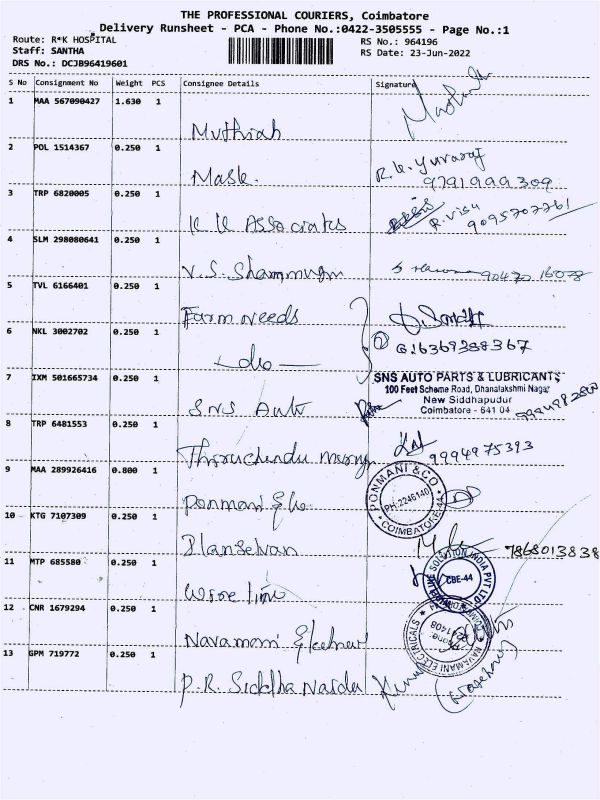 THE PROFESSIONAL COURIERS, Coimbatore
Delivery Runsheet - PCA - Phone No.:0422-3505555 - Page No.:1
Route: R*K HOSPITAL
Staff: SANTHA
DRS No.: DCJB96419601
RS No.: 964196
RS Date: 23-Jun-2022
S No Consignment No Weight PCS Consignee Details Signature
1 MAA 567090427 1.630 1
Muthiah
2 POL 1514367 0.250 1
Mask. R.K. Yuvaraj
9791999309
3 TRP 6820005 0.250 1
K K Associates R. Visu
9095707761
4 SLM 298080641 0.250 1
V.S. Shanmugam
5 TVL 6166401 0.250 1
Farm needs
6 NKL 3002702 0.250 1
-do-
7 IXM 501665734 0.250 1
SNS AUTO PARTS & LUBRICANTS
100 Feet Scheme Road, Dhanalakshmi Nagar
New Siddhapudur
Coimbatore - 641 04
SNS Auto
8 TRP 6481553 0.250 1
9994975393
9 MAA 289926416 0.800 1
PONMANI & CO
PH:2246140
COIMBATORE-44
Ponmani & Co
10 KTG 7107309 0.250 1
Ilanselvan 7868013838
11 MTP 685580 0.250 1
SOLUTION INDIA PVT LTD
CBE-44
12 CNR 1679294 0.250 1
NAVAMANI ELECTRICALS
Navamani
13 GPM 719772 0.250 1
P. R. Siddha Naidu